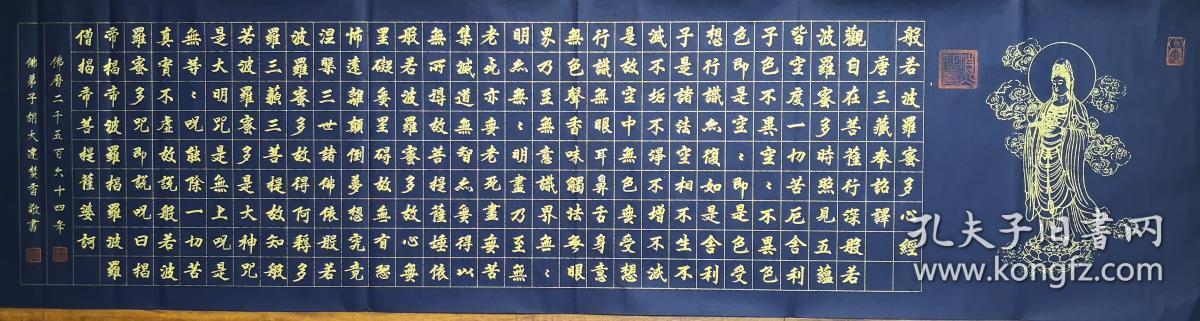 般若波羅蜜多心經
唐三藏奉詔譯
觀自在菩薩行深般若
波羅蜜多時照見五蘊
皆空度一切苦厄舍利
子色不異空〻不異色
色即是空〻即是色受
想行識亦復如是舍利
子是諸法空相不生不
滅不垢不淨不增不減
是故空中無色無受想
行識無眼耳鼻舌身意
無色聲香味觸法無眼
界乃至無意識界無〻
明亦無〻明盡乃至無
老死亦無老死盡無苦
集滅道無智亦無得以
無所得故菩提薩埵依
般若波羅蜜多故心無
罣礙無罣碍故無有恐
怖遠離顛倒夢想究竟
涅槃三世諸佛依般若
波羅蜜多故得阿耨多
羅三藐三菩提故知般
若波羅蜜多是大神咒
是大明咒是無上呪是
無等〻呪能除一切苦
真實不虛故說般若波
羅蜜多咒即說呪曰揭
帝揭帝波羅揭帝波羅
僧揭帝菩提薩婆訶
佛曆二千五百六十四年
佛弟子胡大建焚香敬書
孔夫子旧书网
www.kongfz.com